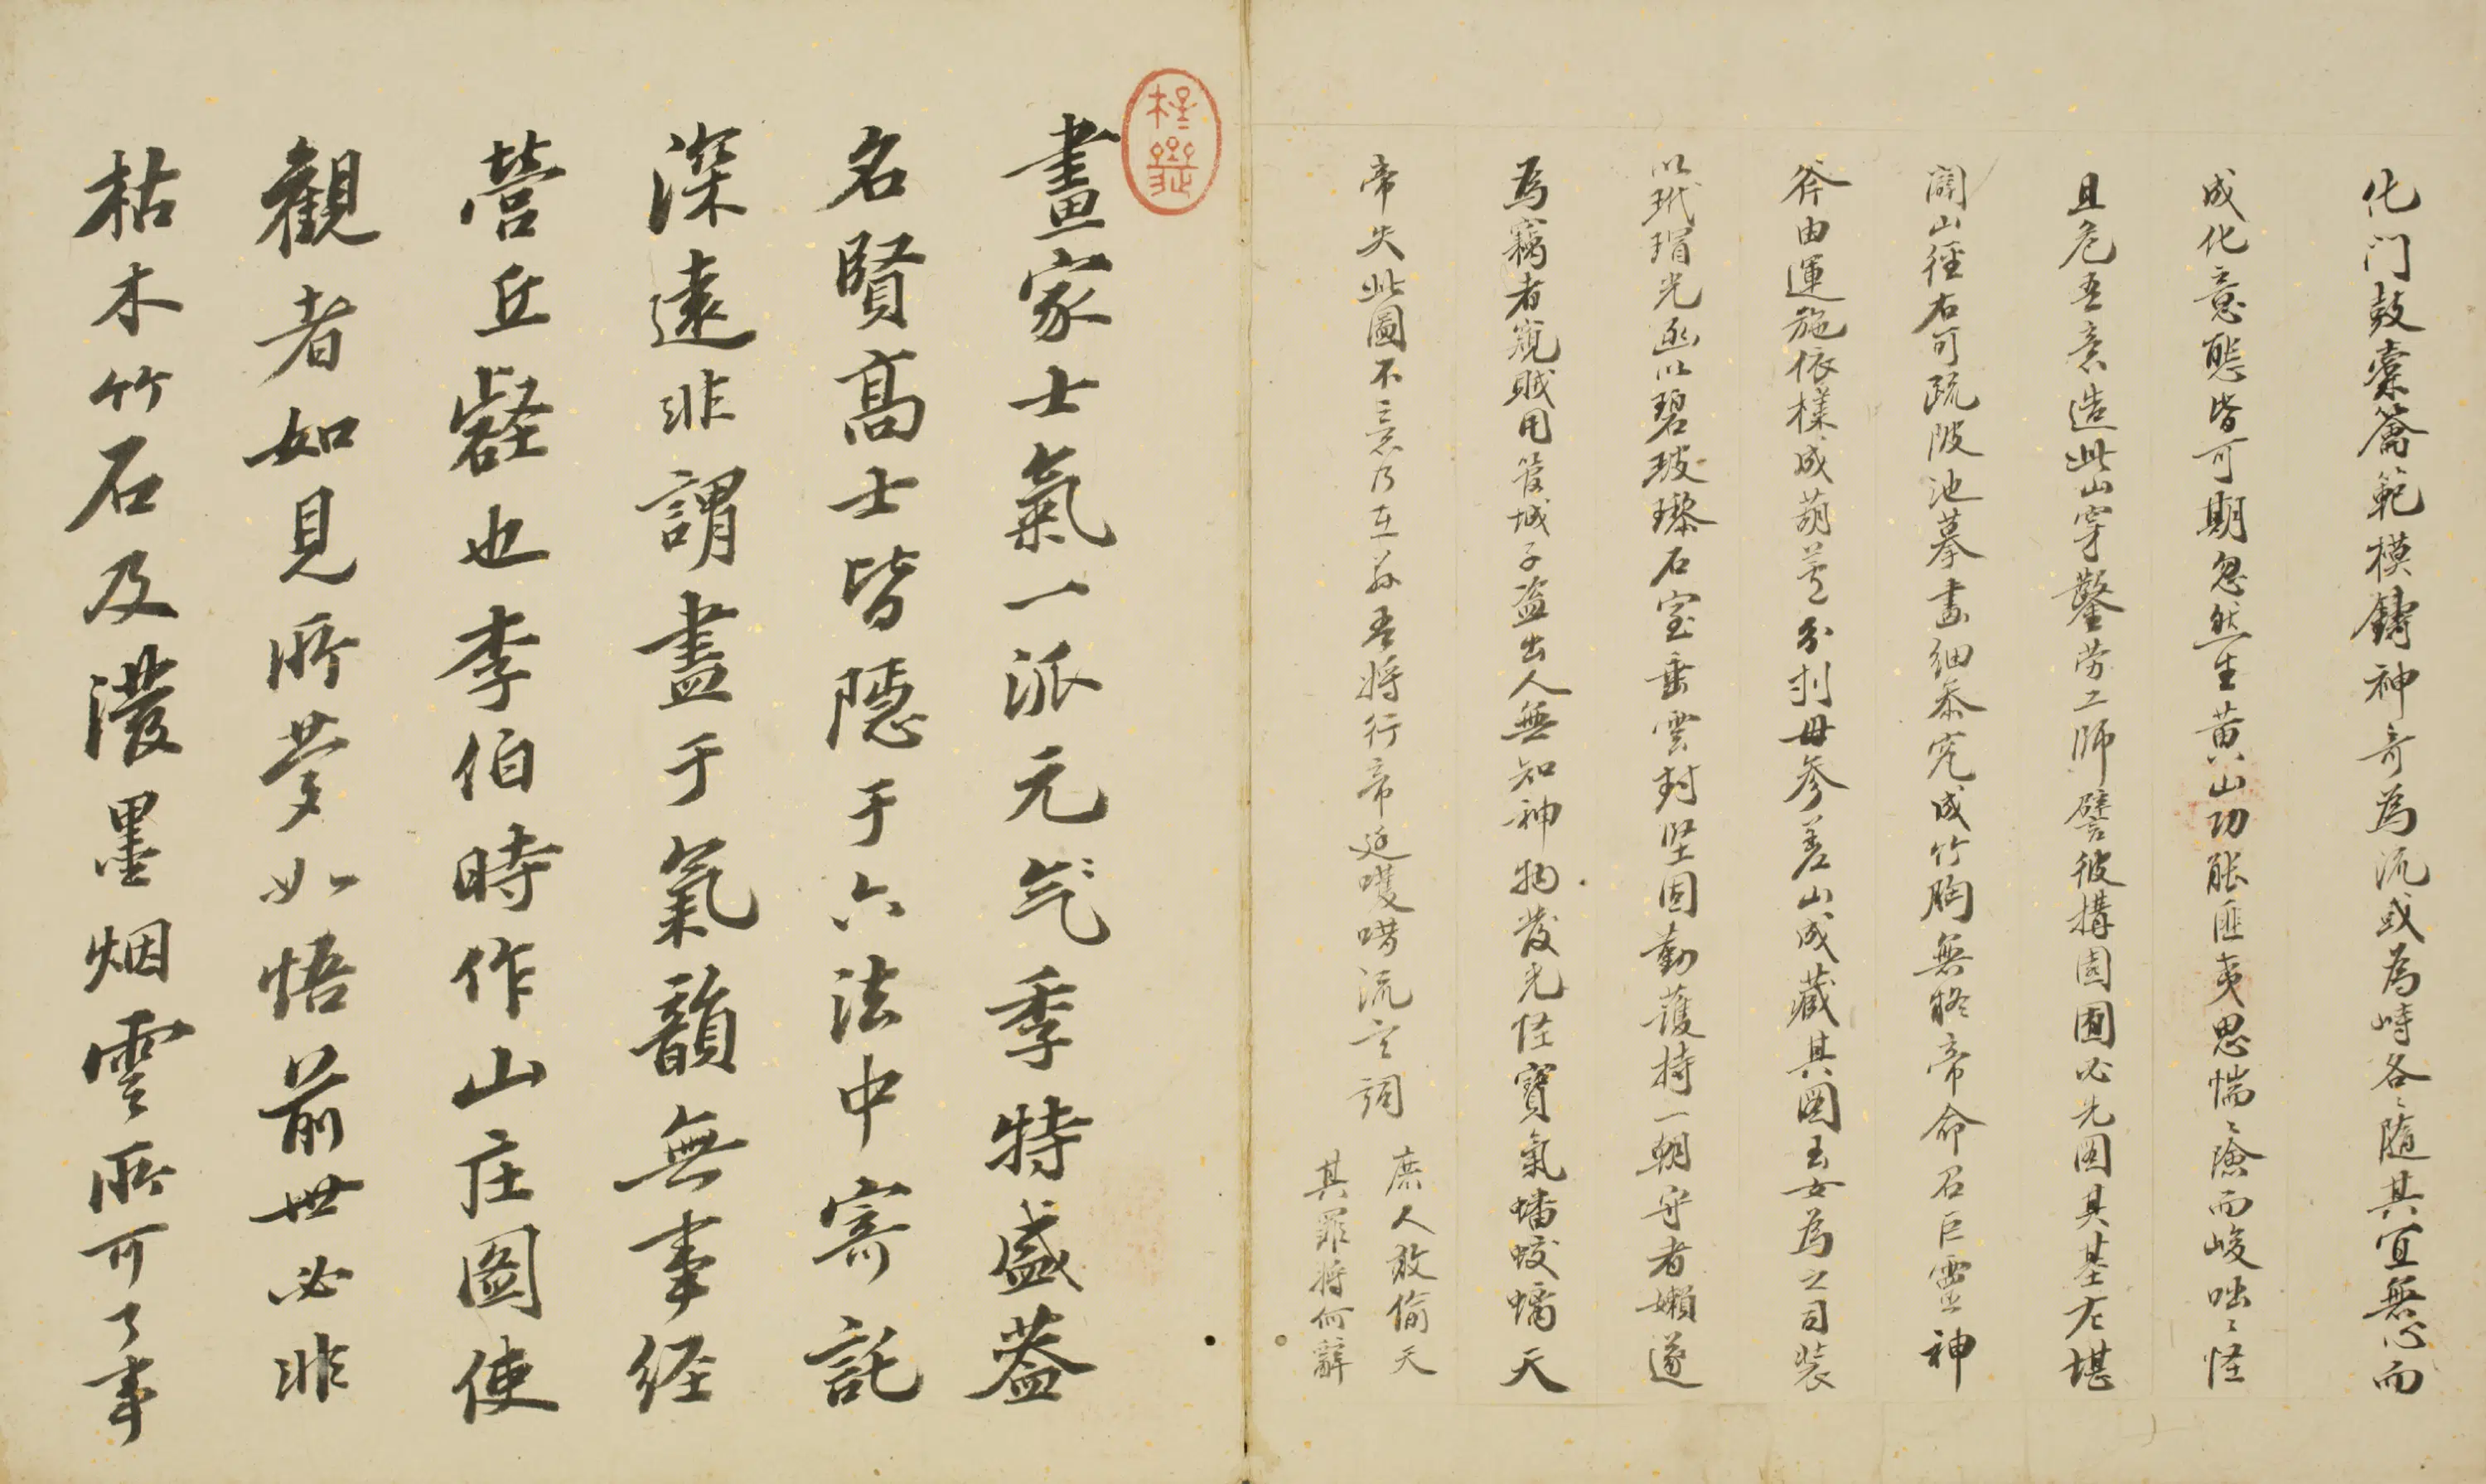 化门鼓橐籥範模鑄神奇為流或為峙各〻隨其宜無心而
成化意態皆可期忽然生黄山功能匪夷思惴〻險而峻咄〻怪
且危吾意造此山穿鑿勞工師譬彼構園囿必先圖其基左堪
闢山徑右可疏陂池摹畫細參究成竹胸無疑帝命召巨靈神
斧由運施依樣成葫蘆分刌毋參差山成藏其圖玉女為之司裝
以玳瑁光函以碧玻瓈石室垂雲封堅固勤護持一朝守者嬾遂
為竊者窺賊用管城子盜出人無知神物發光怪寶氣蟠蛟螭天
帝失此圖不意乃在茲吾將行帝廷嚄唶流言詞
庶人敢偷天
其罪將何辭
畫家士氣一派元气季特盛蓋
名賢高士皆隱于六法中寄託
深遠非謂盡于氣韻無事經
營丘壑也李伯時作山庄圖使
觀者如見所夢如悟前世必非
枯木竹石及濃墨烟雲所可了事